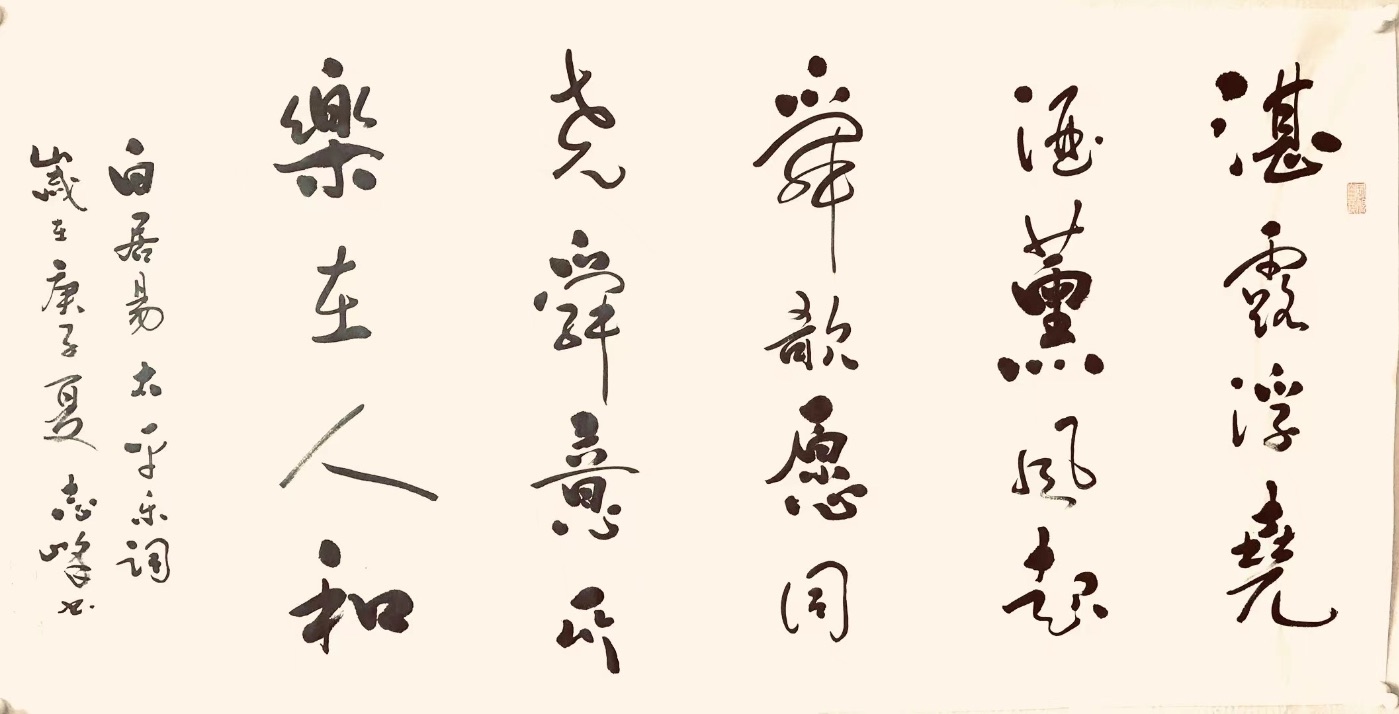 湛露浮堯
酒薰風起
舜歌愿同
尧舜意所
樂在人和
白居易太平乐词
歲在庚子夏志峰书